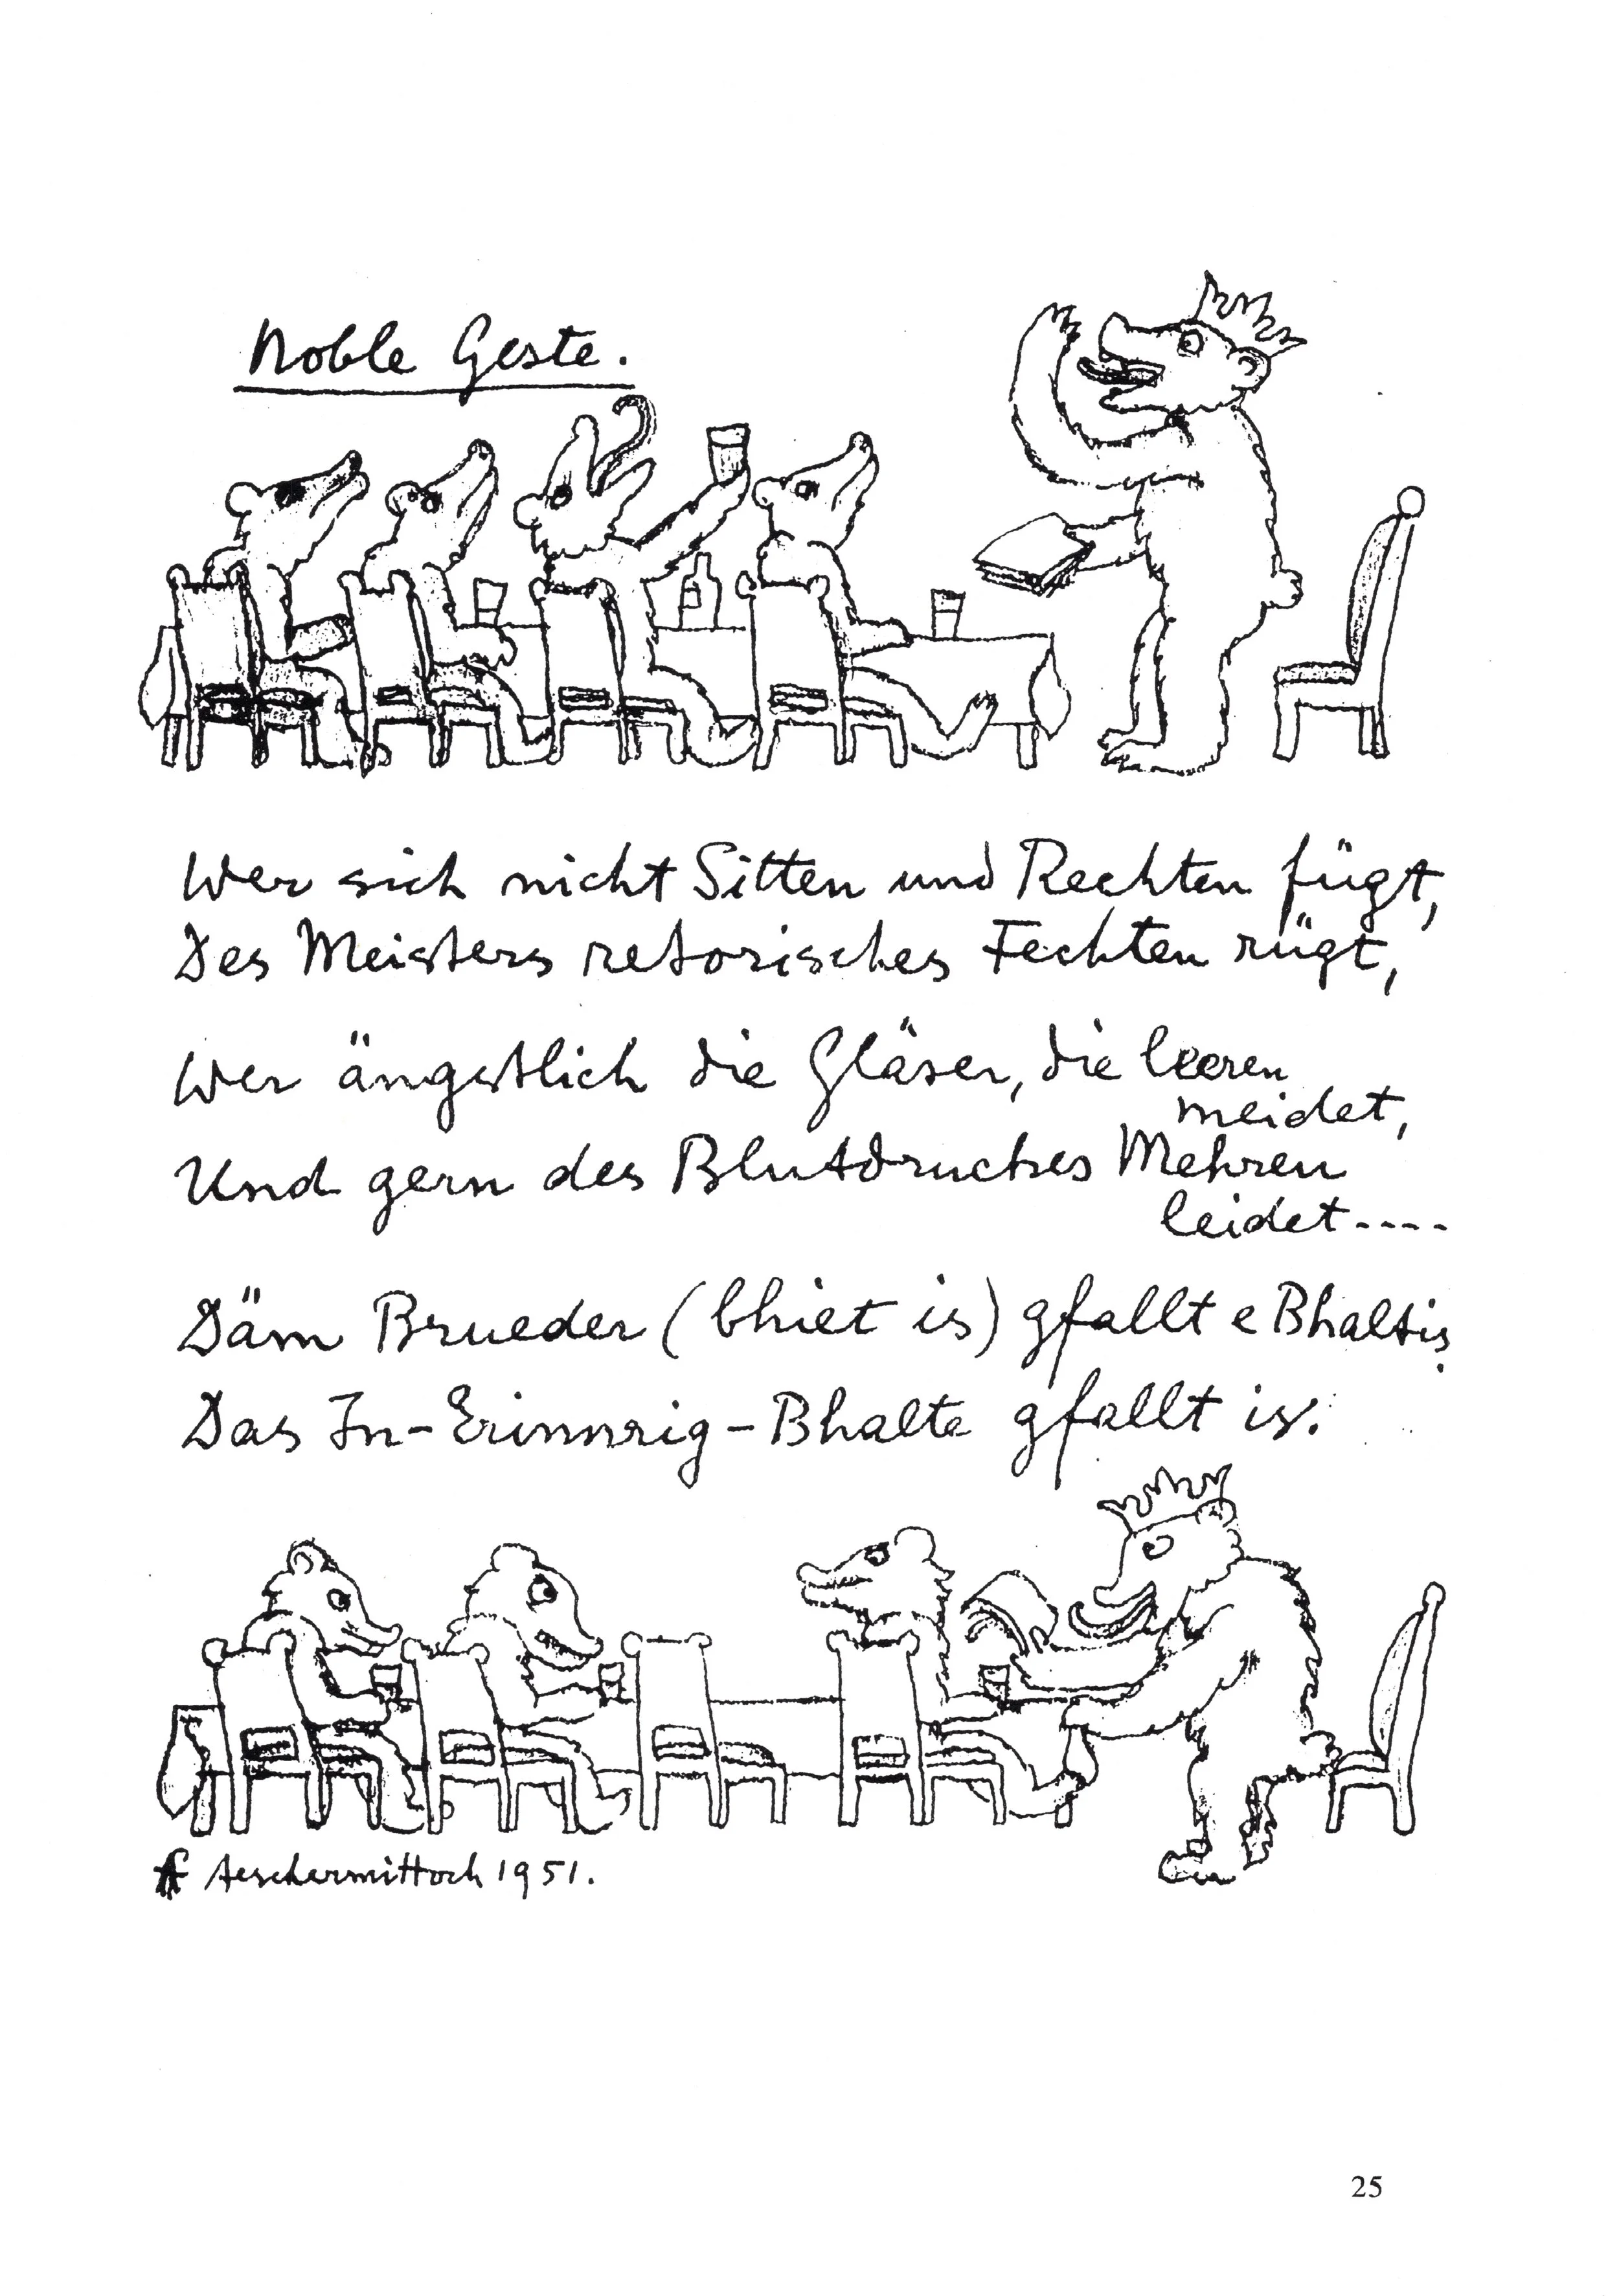 Noble Geste.
Wer sich nicht Sitten und Rechten fügt,
Des Meisters retorisches Fechten rügt,
Wer ängstlich die Gläser, die leeren
meidet,
Und gern des Blutdruckes Mehren
leidet----
Däm Brueder (bhiet is) gfallt e Bhaltis
Das In-Erinnrig-Bhalte gfallt is.
Aeschermittoch 1951.
25